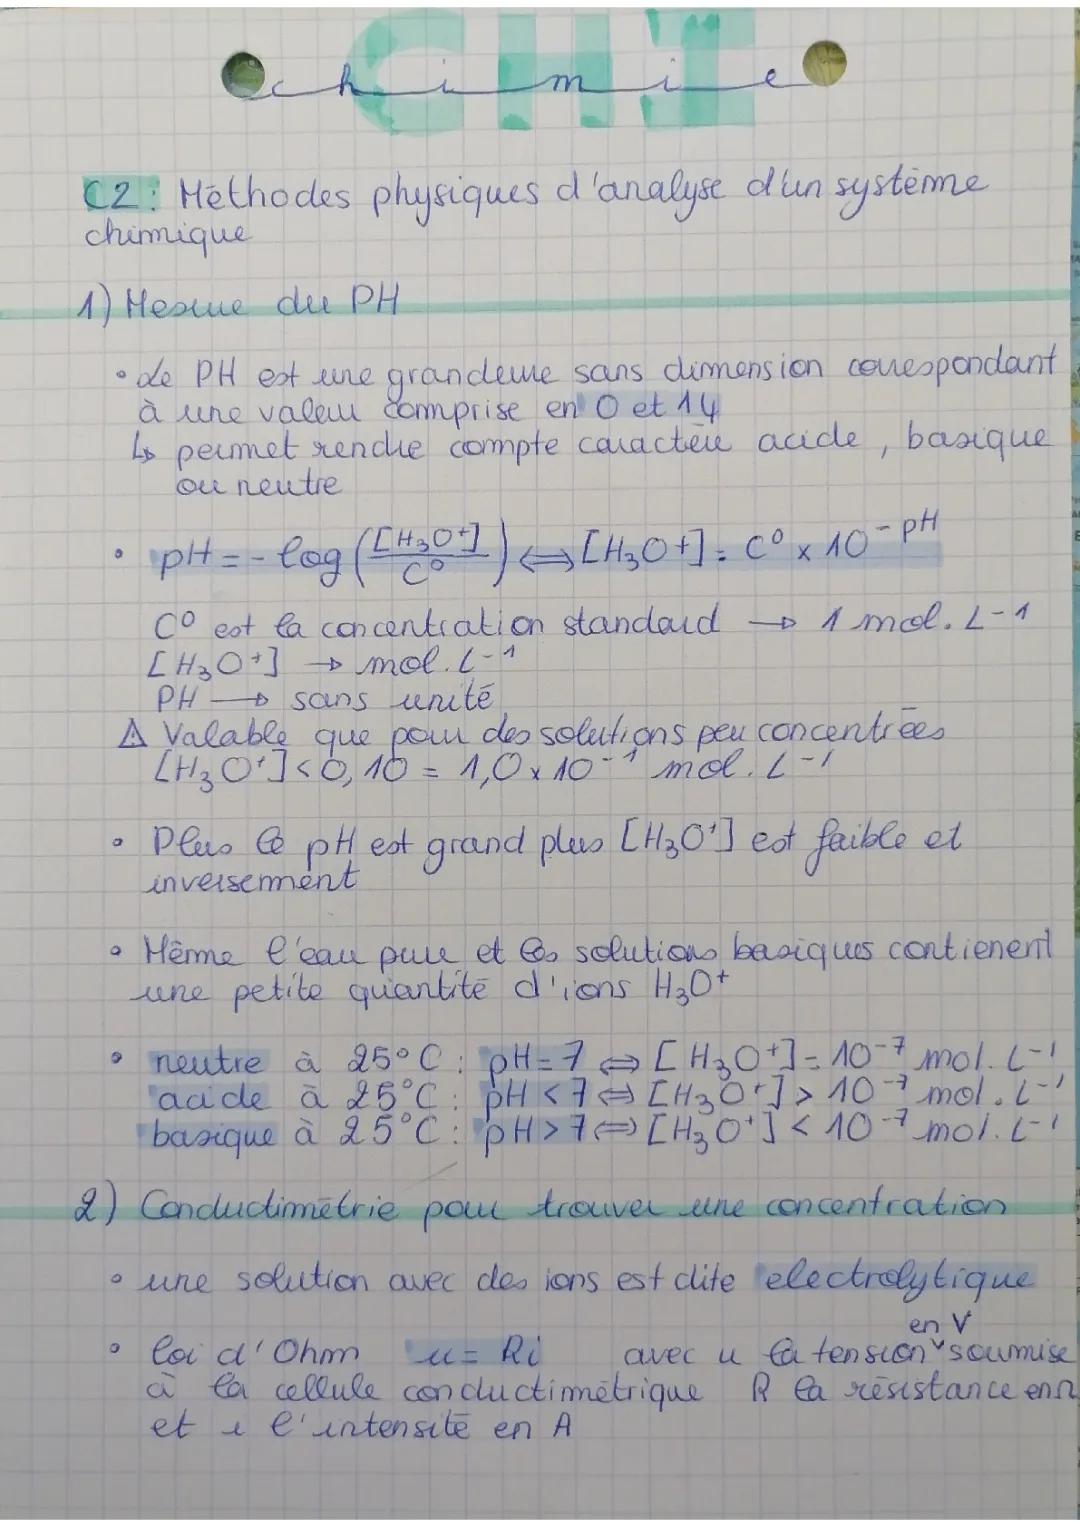 CHI
chimie
C2 : Méthodes physiques d'analyse d'un système
chimique
1) Mesure du PH
• Le PH est une grandeure sans dimension correspondant
à une valeur comprise en 0 et 14
↳ permet rendre compte caractère acide, basique
ou neutre
• pH = - log ([H3O+]/C°) ⟺ [H3O+] = C° x 10^-pH
C° est la concentration standard → 1 mol. L-1
[H3O+] → mol. L-1
PH → sans unité
⚠ Valable que pour des solutions peu concentrées
[H3O+] < 0,10 = 1,0 x 10-1 mol. L-1
• Plus le pH est grand plus [H3O+] est faible et
inversemment
• Même l'eau pure et les solutions basiques contienent
une petite quantité d'ions H3O+
• neutre à 25°C : pH = 7 ⟺ [H3O+] = 10-7 mol. L-1
acide à 25°C : pH < 7 ⟺ [H3O+] > 10-7 mol. L-1
basique à 25°C : pH > 7 ⟺ [H3O+] < 10-7 mol. L-1
2) Conductimétrie pour trouver une concentration
• une solution avec des ions est dite electrolytique
en V
• loi d'Ohm u = Ri avec u la tension soumise
à la cellule conductimétrique R la résistance en Ω
et i l'intensité en A